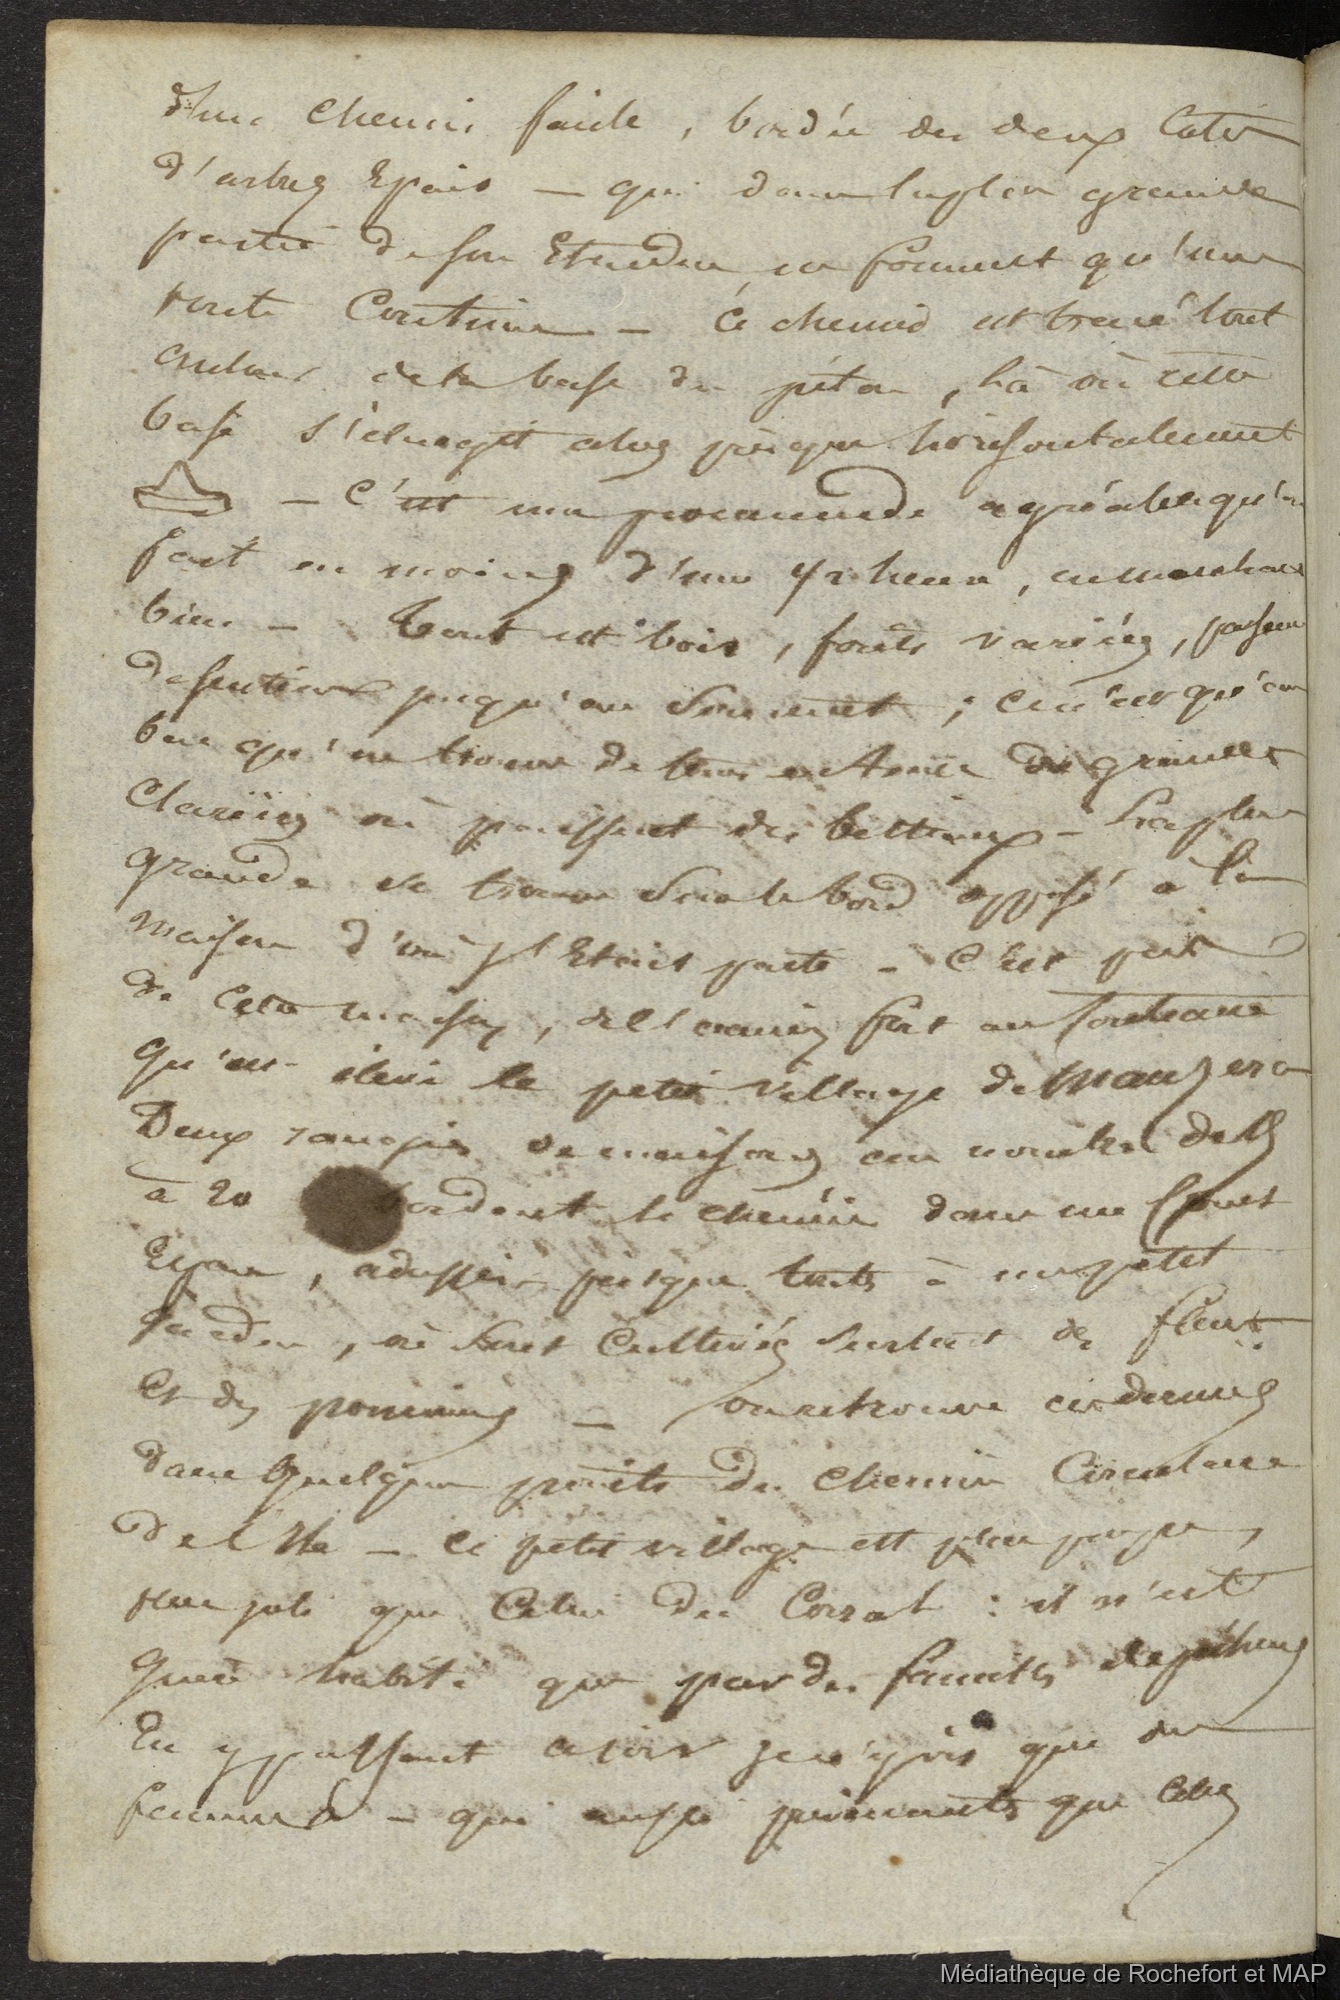 d'un chemin facile, bordé des deux Cotés
d'arbres Epais — qui dans la plus grande
partie de son Etendue, en forment qu'une
voute Continue — Ce chemin est tracé tout
autour de la base du piton, là où cette
base s'élargit alors presque horisontalement
— C'est une promenade agréable qu'on
fait en moins d'une 1/2 heure, en marchant
bien — Tout est bois, forêts variées,
de sentiers jusqu'au Sommet ; ce n'est qu'en
bas qu'on trouve de tems en tems de grandes
Clarieres où paissent des bestiaux — La plus
grande se trouve Sur le bord opposé à la
maison d'où j'Etais parti — C'est près
de cette maison, de l'ancien fort au
qu'on élevé le petit village de Manzera
Deux rangées de maisons au nombre de 15
à 20 bordent le chemin dans un
Espace, adossées presque toutes à un petit
jardin, où Sont Cultivés Surtout des fleurs
Et des pommiers — on retrouve ces derniers
dans quelques points du Chemin Circulaire
De l'Ile — Ce petit village est plus propre,
plus joli que Celui du Corral : il n'est
Guère habité que par des familles de pêcheurs
En y passant ce soir je n'y vis que des
femmes — qui aussi prévenantes que Celles